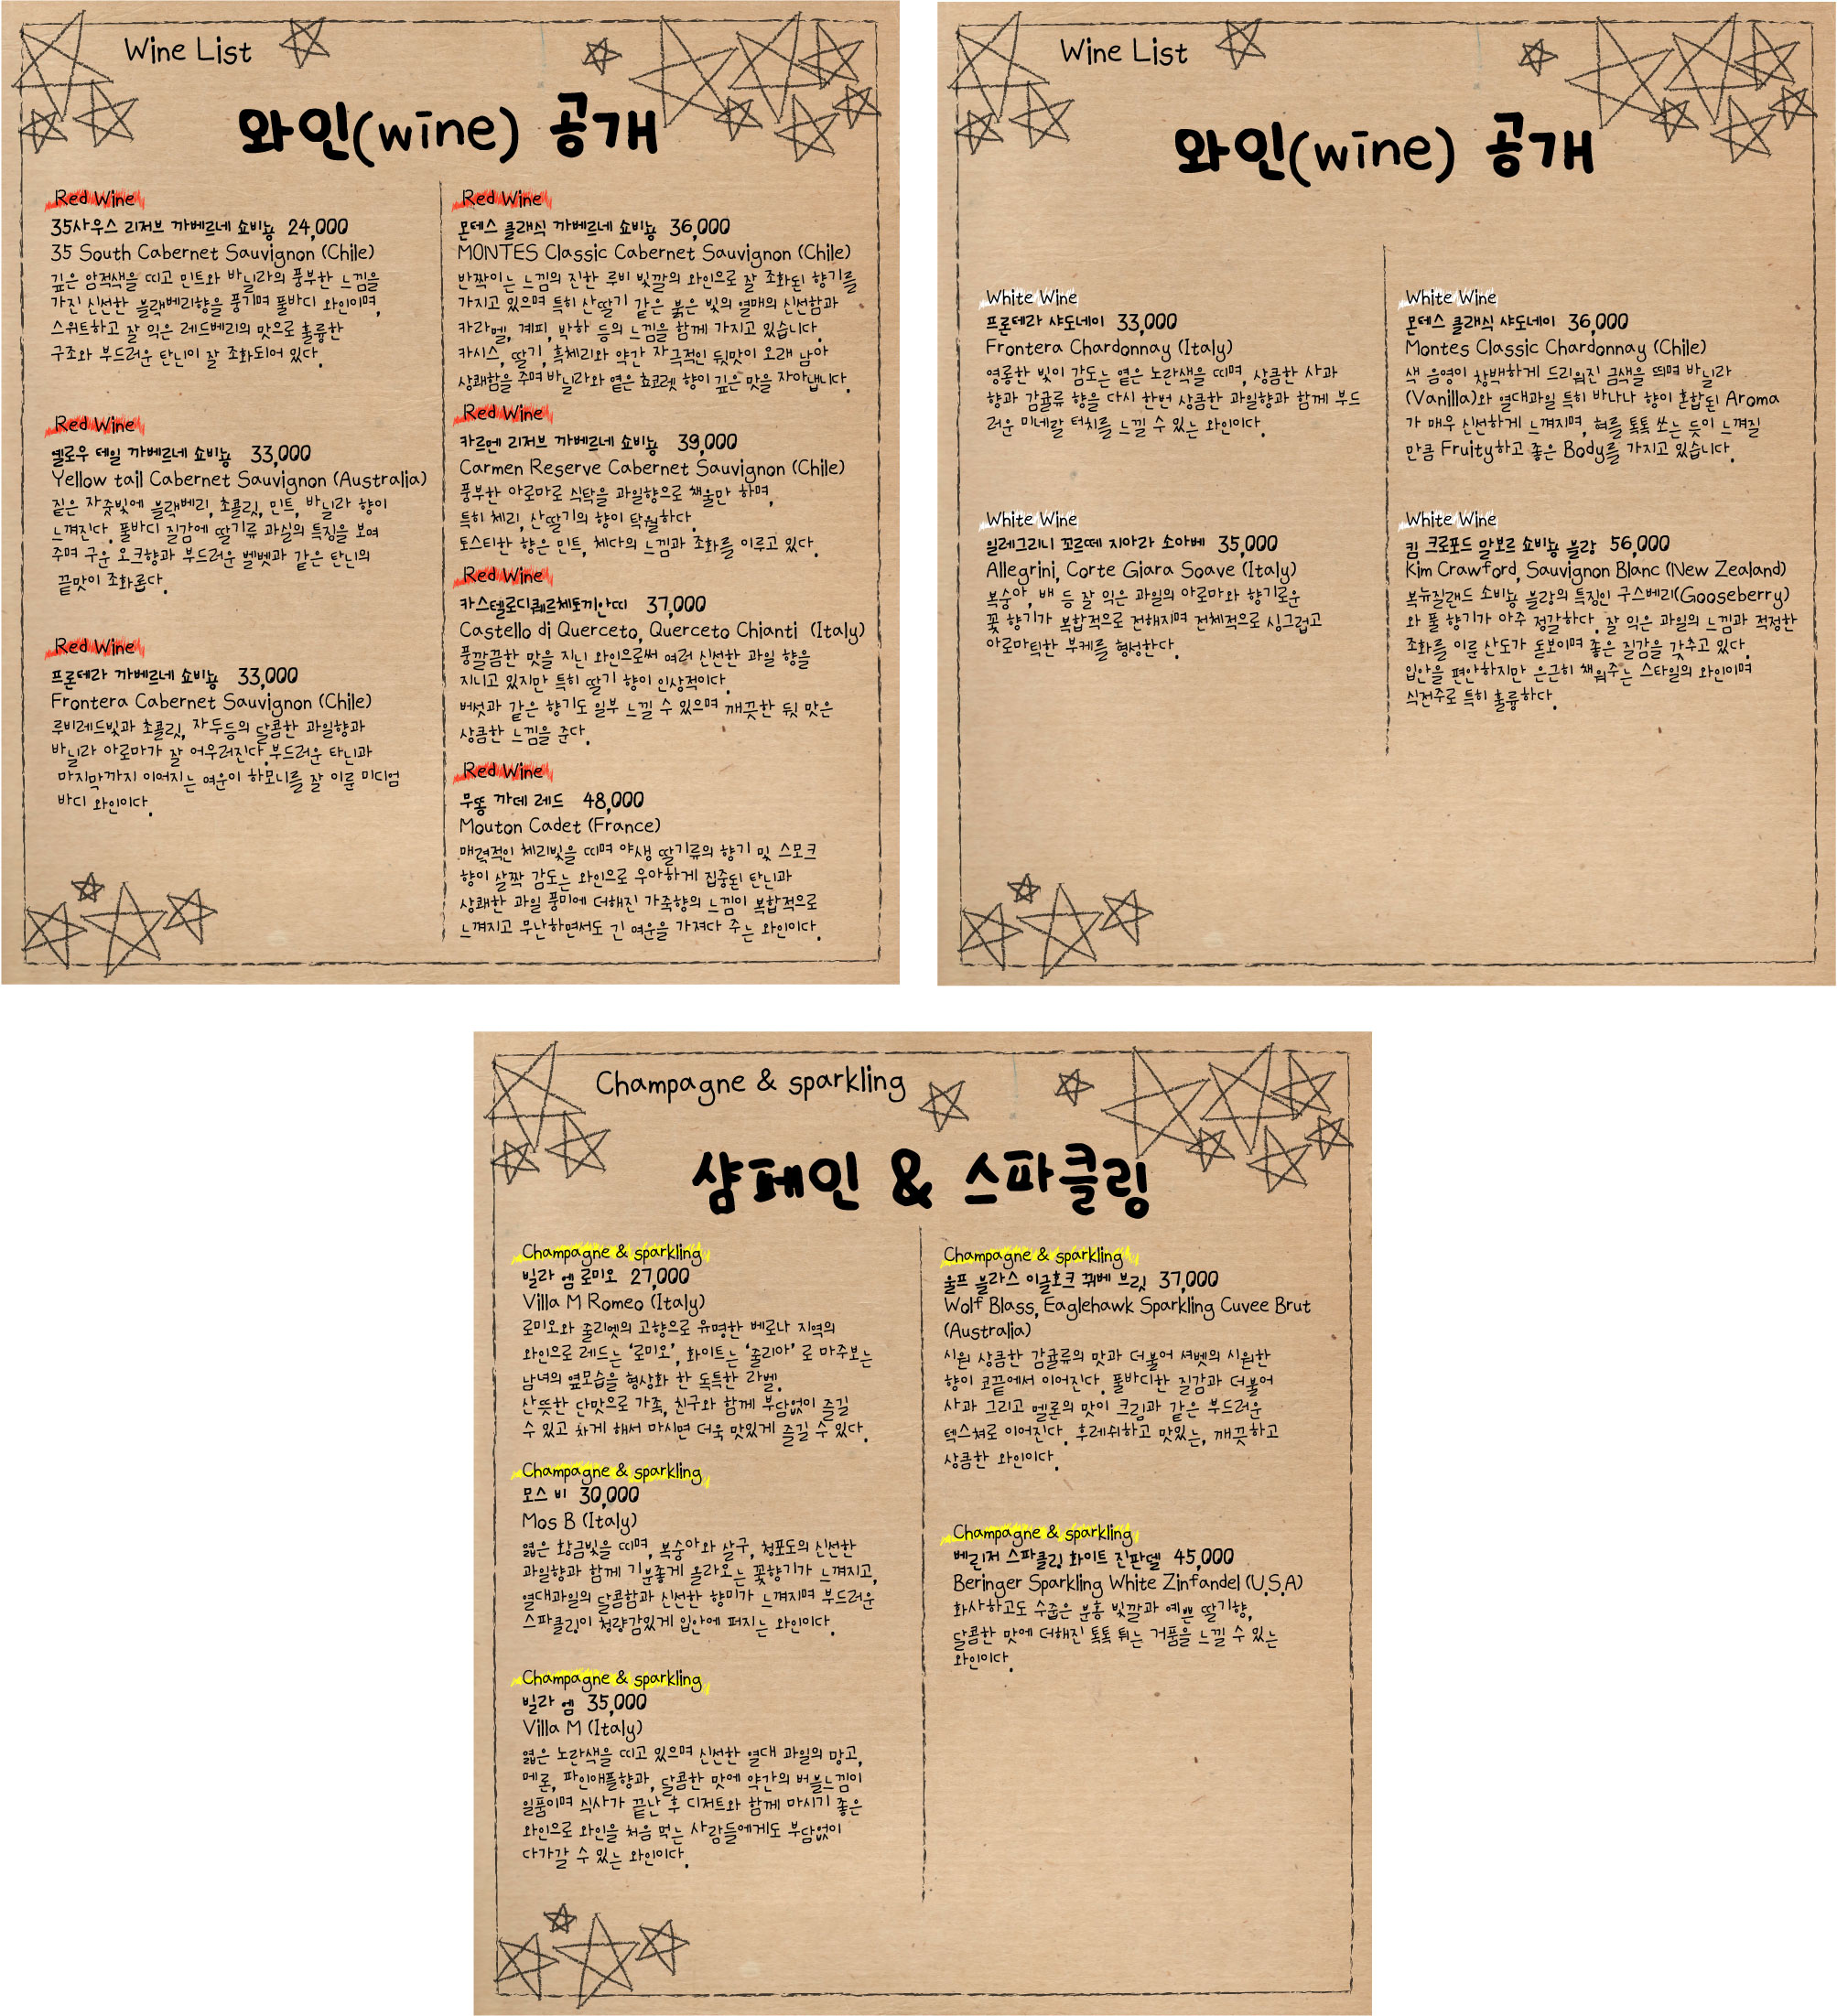 Wine List
와인(wine) 공개
Red Wine
35사우스 리저브 까베르네 쇼비뇽 24,000
35 South Cabernet Sauvignon (Chile)
깊은 암적색을 띠고 민트와 바닐라의 풍부한 느낌을
가진 신선한 블랙베리향을 풍기며 풀바디 와인이며,
스위트하고 잘 익은 레드베리의 맛으로 훌륭한
구조와 부드러운 탄닌이 잘 조화되어 있다.
Red Wine
옐로우 테일 까베르네 쇼비뇽 33,000
Yellow tail Cabernet Sauvignon (Australia)
짙은 자줏빛에 블랙베리, 초콜릿, 민트, 바닐라 향이
느껴진다. 풀바디 질감에 딸기류 과실의 특징을 보여
주며 구운 오크향과 부드러운 벨벳과 같은 탄닌의
끝맛이 조화롭다.
Red Wine
프론테라 까베르네 쇼비뇽 33,000
Frontera Cabernet Sauvignon (Chile)
루비레드빛과 초콜릿, 자두등의 달콤한 과일향과
바닐라 아로마가 잘 어우러진다.부드러운 타닌과
마지막까지 이어지는 여운이 하모니를 잘 이룬 미디엄
바디 와인이다.
Red Wine
몬테스 클래식 까베르네 쇼비뇽 36,000
MONTES Classic Cabernet Sauvignon (Chile)
반짝이는 느낌의 진한 루비 빛깔의 와인으로 잘 조화된 향기를
가지고 있으며 특히 산딸기 같은 붉은 빛의 열매의 신선함과
카라멜, 계피, 박하 등의 느낌을 함께 가지고 있습니다.
카시스, 딸기, 흑체리와 약간 자극적인 뒷맛이 오래 남아
상쾌함을 주며 바닐라와 옅은 쵸코렛 향이 깊은 맛을 자아냅니다.
Red Wine
카르멘 리저브 까베르네 쇼비뇽 39,000
Carmen Reserve Cabernet Sauvignon (Chile)
풍부한 아로마로 식탁을 과일향으로 채울만 하며,
특히 체리, 산딸기의 향이 탁월하다.
토스티한 향은 민트, 체다의 느낌과 조화를 이루고 있다.
Red Wine
카스텔로디퀘르체토끼안띠 37,000
Castello di Querceto, Querceto Chianti (Italy)
풍깔끔한 맛을 지닌 와인으로써 여러 신선한 과일 향을
지니고 있지만 특히 딸기 향이 인상적이다.
버섯과 같은 향기도 일부 느낄 수 있으며 깨끗한 뒷 맛은
상큼한 느낌을 준다.
Red Wine
무똥 까데 레드 48,000
Mouton Cadet (France)
매력적인 체리빛을 띠며 야생 딸기류의 향기 및 스모크
향이 살짝 감도는 와인으로 우아하게 집중된 탄닌과
상쾌한 과일 풍미에 더해진 가죽향의 느낌이 복합적으로
느껴지고 무난하면서도 긴 여운을 가져다 주는 와인이다.
Wine List
와인(wine) 공개
White Wine
프론테라 샤도네이 33,000
Frontera Chardonnay (Italy)
영롱한 빛이 감도는 옅은 노란색을 띠며, 상큼한 사과
향과 감귤류 향을 다시 한번 상큼한 과일향과 함께 부드
러운 미네랄 터치를 느낄 수 있는 와인이다.
White Wine
알레그리니 꼬르떼 지아라 소아베 35,000
Allegrini, Corte Giara Soave (Italy)
복숭아, 배 등 잘 익은 과일의 아로마와 향기로운
꽃 향기가 복합적으로 전해지며 전체적으로 싱그럽고
아로마틱한 부케를 형성한다.
White Wine
몬테스 클래식 샤도네이 36,000
Montes Classic Chardonnay (Chile)
색 음영이 창백하게 드리워진 금색을 띄며 바닐라
(Vanilla)와 열대과일 특히 바나나 향이 혼합된 Aroma
가 매우 신선하게 느껴지며, 혀를 톡톡 쏘는 듯이 느껴질
만큼 Fruity하고 좋은 Body를 가지고 있습니다.
White Wine
킴 크로포드 말보로 쇼비뇽 블랑 56,000
Kim Crawford, Sauvignon Blanc (New Zealand)
복뉴질랜드 소비뇽 블랑의 특징인 구스베리(Gooseberry)
와 풀 향기가 아주 정갈하다. 잘 익은 과일의 느낌과 적정한
조화를 이룬 산도가 돋보이며 좋은 질감을 갖추고 있다.
입안을 편안하지만 은근히 채워주는 스타일의 와인이며
식전주로 특히 훌륭하다.
Champagne & sparkling
샴페인 & 스파클링
Champagne & sparkling
빌라 엠 로미오 27,000
Villa M Romeo (Italy)
로미오와 줄리엣의 고향으로 유명한 베로나 지역의
와인으로 레드는 ‘로미오’, 화이트는 ‘줄리아’ 로 마주보는
남녀의 옆모습을 형상화 한 독특한 라벨.
산뜻한 단맛으로 가족, 친구와 함께 부담없이 즐길
수 있고 차게 해서 마시면 더욱 맛있게 즐길 수 있다.
Champagne & sparkling
모스 비 30,000
Mos B (Italy)
엷은 황금빛을 띠며, 복숭아와 살구, 청포도의 신선한
과일향과 함께 기분좋게 올라오는 꽃향기가 느껴지고,
열대과일의 달콤함과 신선한 향미가 느껴지며 부드러운
스파클링이 청량감있게 입안에 퍼지는 와인이다.
Champagne & sparkling
빌라 엠 35,000
Villa M (Italy)
엷은 노란색을 띠고 있으며 신선한 열대 과일의 망고,
메론, 파인애플향과, 달콤한 맛에 약간의 버블느낌이
일품이며 식사가 끝난 후 디저트와 함께 마시기 좋은
와인으로 와인을 처음 먹는 사람들에게도 부담없이
다가갈 수 있는 와인이다.
Champagne & sparkling
울프 블라스 이글호크 뀌베 브릿 37,000
Wolf Blass, Eaglehawk Sparkling Cuvee Brut
(Australia)
시원 상큼한 감귤류의 맛과 더불어 셔벳의 시원한
향이 코끝에서 이어진다. 풀바디한 질감과 더불어
사과 그리고 멜론의 맛이 크림과 같은 부드러운
텍스쳐로 이어진다. 후레쉬하고 맛있는, 깨끗하고
상큼한 와인이다.
Champagne & sparkling
베린저 스파클링 화이트 진판델 45,000
Beringer Sparkling White Zinfandel (U.S.A)
화사하고도 수줍은 분홍 빛깔과 예쁜 딸기향,
달콤한 맛에 더해진 톡톡 튀는 거품을 느낄 수 있는
와인이다.